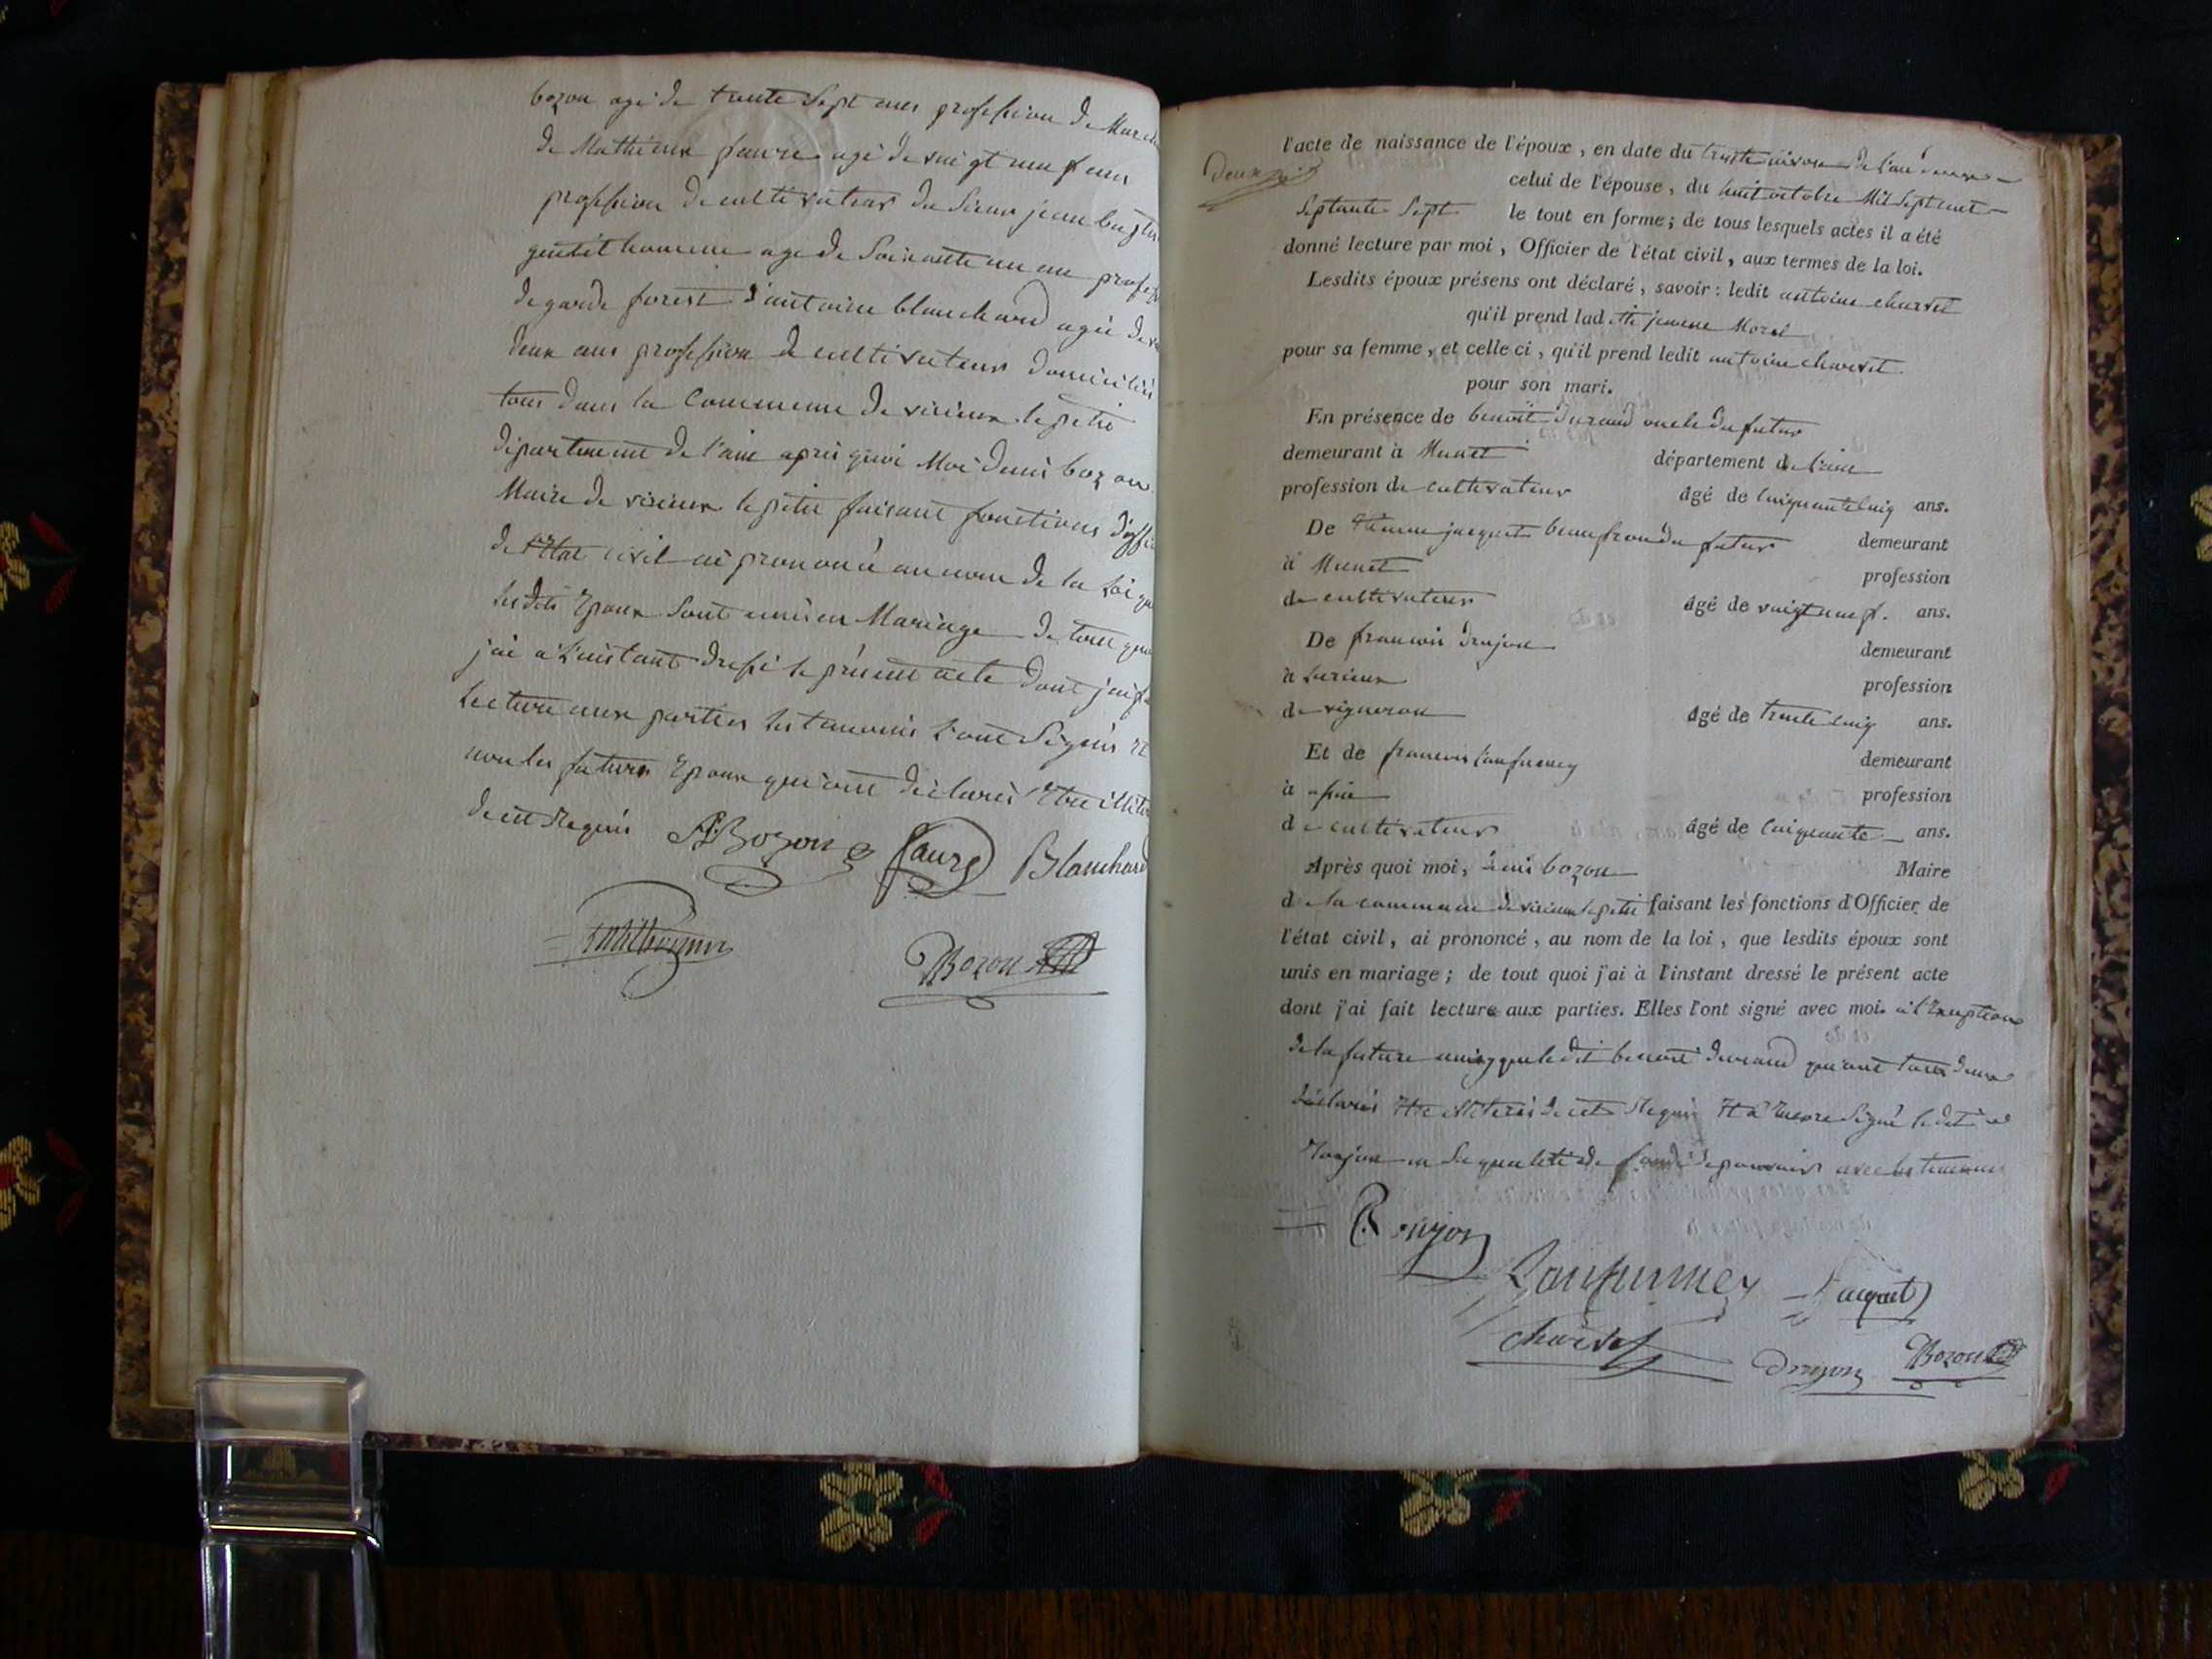 bozon agé de trente Sept ans profession de March
de Mathieux faure agé de vingt neuf ans
profession de cultivateur du Sieur jean baptis
gentit homme age de Soixante un an profes
de garde forest d'antoine blanchard agée de
deux ans profession de cultivateur domiciliés
tous dans la Commune de virieux le petit
département de l'ain apris quoi Moi denis bozon
Maire de virieux le petit faisant fonctions d'offi
de l'Etat civil ai prononcé au nom de la Loi qu
lesdits Epoux Sont unis en Mariage de tout quoi
j'ai a L'instant dressé le présent acte dont j'ai f
Lecture aux parties les temoins L'ont Signés et
non les futurs Epoux qui ont déclarés Etre illite
de ce Requis Bozon faure Blanchard
Bozon
l'acte de naissance de l'époux, en date du trente nivose de l'an
celui de l'épouse, du huit octobre Mil Sept cent
Septante Sept le tout en forme; de tous lesquels actes il a été
donné lecture par moi, Officier de l'état civil, aux termes de la loi.
Lesdits époux présens ont déclaré, savoir: ledit antoine charvet
qu'il prend lad. jeanne Morel
pour sa femme, et celle ci, qu'il prend ledit antoine charvet
pour son mari.
En présence de benoit durand oncle du futur
demeurant à Munet département de l'ain
profession de cultivateur âgé de Cinquante Cinq ans.
De Etienne jacquet beaufrere du futur demeurant
à Munet profession
de cultivateur âgé de vingt neuf. ans.
De francois drujon demeurant
à Lurieux profession
de vigneron âgé de trente Cinq ans.
Et de francois Lanfumey demeurant
à profession
de cultivateur âgé de Cinquante ans.
Après quoi moi, denis bozon Maire
de la commune de virieux le petit faisant les fonctions d'Officier de
l'état civil, ai prononcé, au nom de la loi, que lesdits époux sont
unis en mariage; de tout quoi j'ai à l'instant dressé le présent acte
dont j'ai fait lecture aux parties. Elles l'ont signé avec moi. à l'Exeption
de la future ledit benoit durand qui ont tous deux
déclarés Etre illiterés de ce Requis Et a Encore Signé ledit
en Sa qualité de fondé de pouvoir avec les temoins
Lanfumey jacquet
charvet drujon Bozon